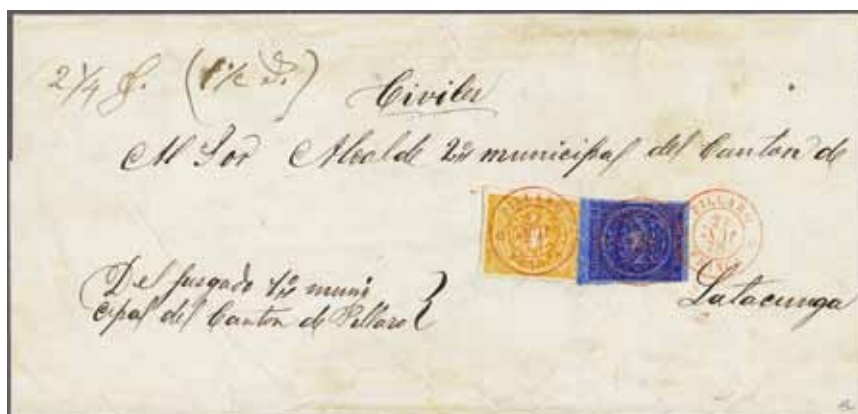 2 1/4 f. (1 1/2 d.)
Civiles
Al Sor Alcalde 2º municipal del Canton de
PILLARO
PILLARO
Latacunga
Del juzgado 1º muni
cipal del Canton de Pillaro